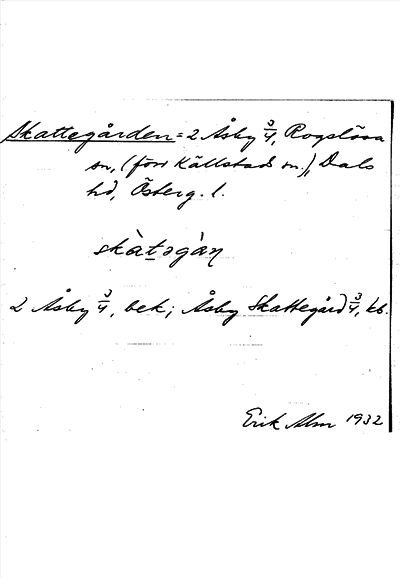 Skattegården = 2 Åsby 3/4, Rogslösa
sn, (förr Källstad sn.), Dals
hd, Österg. l.
skàt̲əgàɳ
2 Åsby 3/4, bek; Åsby Skattegård 3/4, kb.
Erik Alm 1932